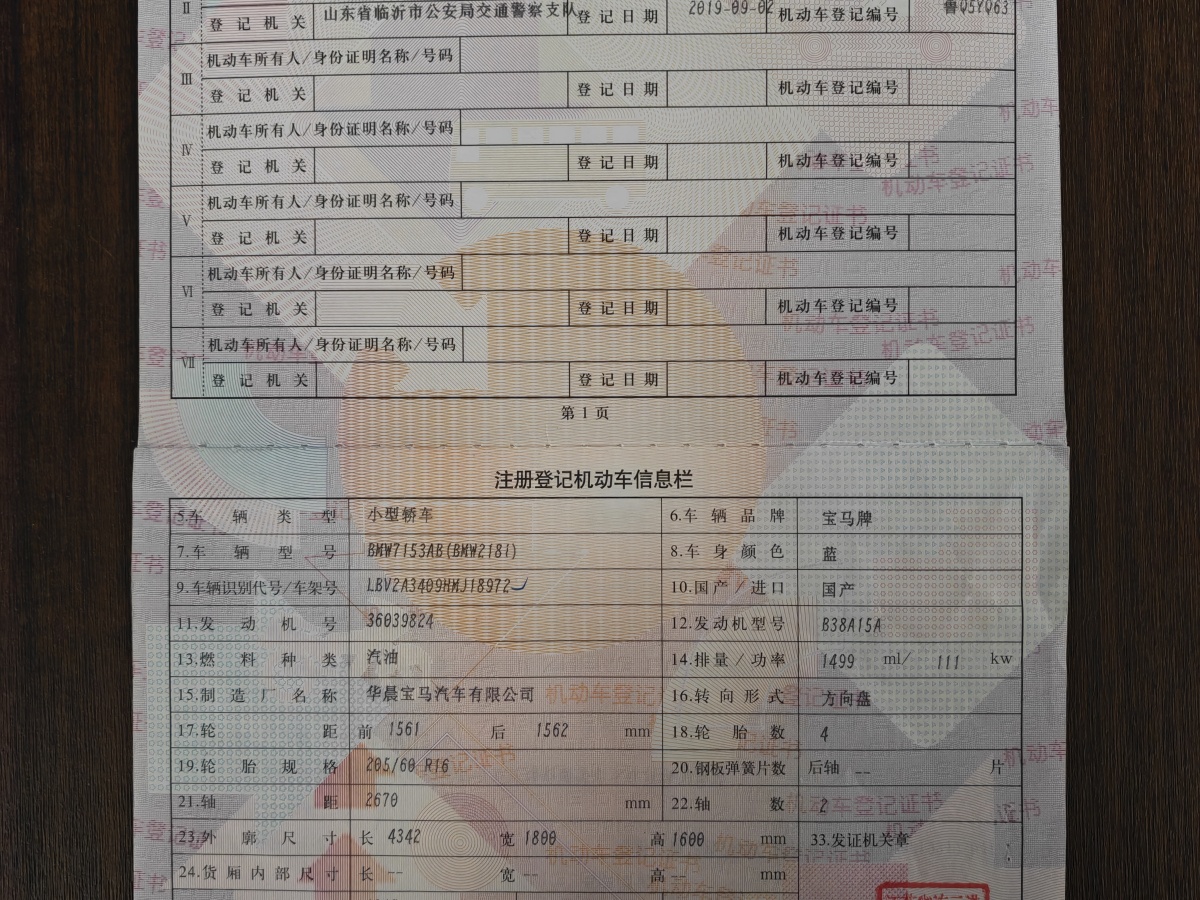 Ⅱ 登记机关 山东省临沂市公安局交通警察支队 登记日期 2019-09-02 机动车登记编号 鲁Q5YQ63
Ⅲ 机动车所有人/身份证明名称/号码
登记机关 登记日期 机动车登记编号
Ⅳ 机动车所有人/身份证明名称/号码
登记机关 登记日期 机动车登记编号
Ⅴ 机动车所有人/身份证明名称/号码
登记机关 登记日期 机动车登记编号
Ⅵ 机动车所有人/身份证明名称/号码
登记机关 登记日期 机动车登记编号
Ⅶ 机动车所有人/身份证明名称/号码
登记机关 登记日期 机动车登记编号
第1页
注册登记机动车信息栏
5.车辆类型 小型轿车 6.车辆品牌 宝马牌
7.车辆型号 BMW7153AB(BMW218I) 8.车身颜色 蓝
9.车辆识别代号/车架号 LBV2A3409HMJ18972 10.国产/进口 国产
11.发动机号 36039824 12.发动机型号 B38A15A
13.燃料种类 汽油 14.排量/功率 1499 ml/ 111 kw
15.制造厂名称 华晨宝马汽车有限公司 16.转向形式 方向盘
17.轮距 前 1561 后 1562 mm 18.轮胎数 4
19.轮胎规格 205/60 R16 20.钢板弹簧片数 后轴 -- 片
21.轴距 2670 mm 22.轴数 2
23.外廓尺寸 长 4342 宽 1800 高 1600 mm 33.发证机关章
24.货厢内部尺寸 长 -- 宽 -- 高 -- mm